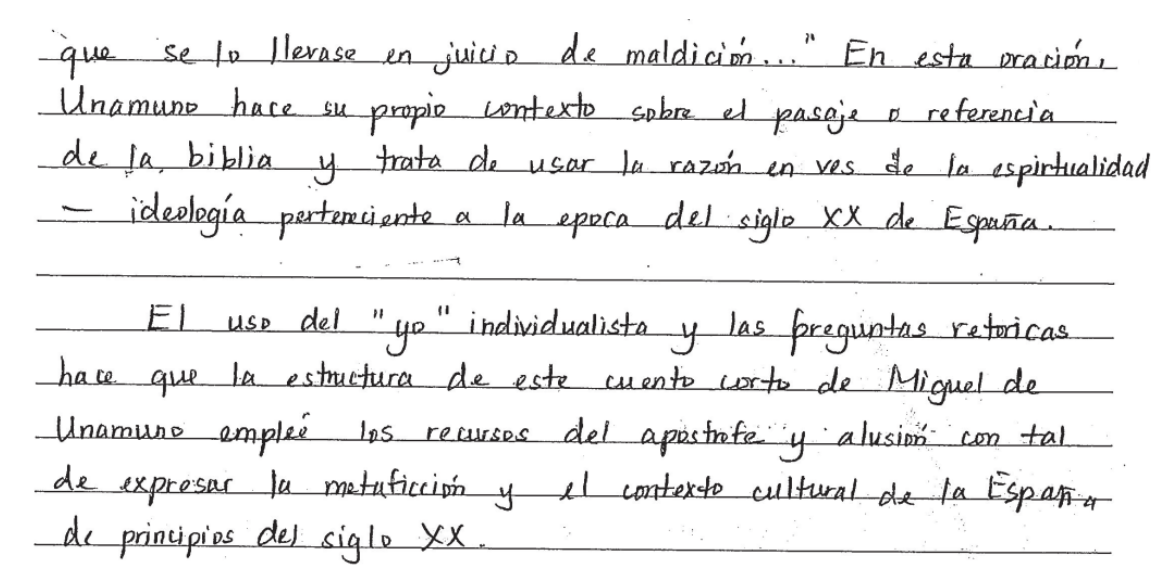 que se lo llevase en juicio de maldición..." En esta oración,
Unamuno hace su propio contexto sobre el pasaje o referencia
de la biblia y trata de usar la razón en ves de la espirtualidad
— ideología perteneciente a la epoca del siglo XX de España.
El uso del "yo" individualista y las preguntas retoricas
hace que la estructura de este cuento corto de Miguel de
Unamuno empleé los recursos del apóstrofe y alusión con tal
de expresar la metaficción y el contexto cultural de la España
de principios del siglo XX.